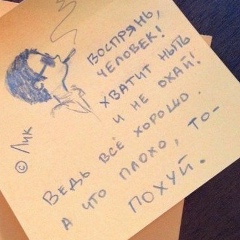 Воспрянь,
человек!
Хватит ныть
и не охай!
Ведь всё хорошо.
А что плохо, то-
похуй.
© Лик